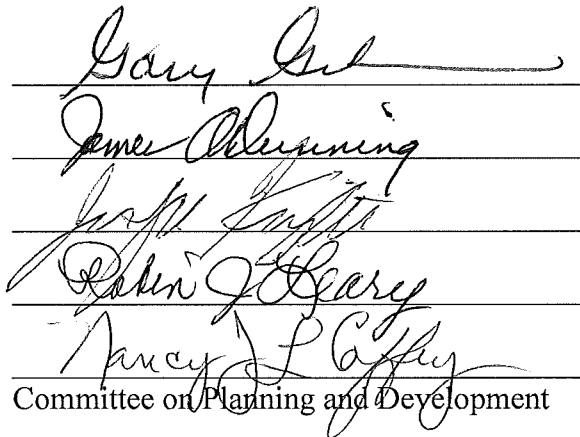 Gary
James
Joseph
Robin J O'Leary
Nancy L Coffey
Committee on Planning and Development